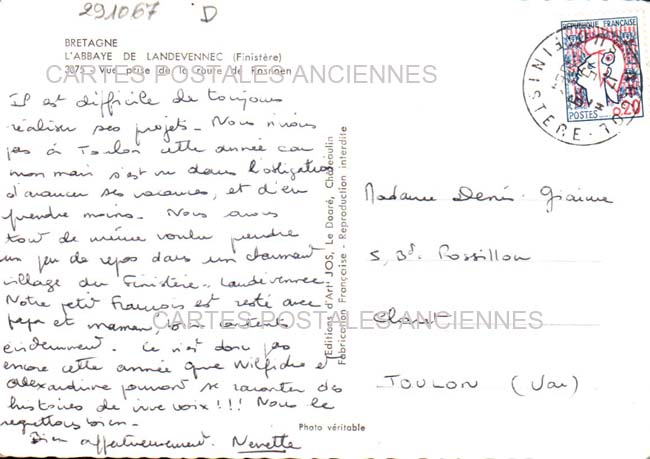 291067 D
BRETAGNE
L'ABBAYE DE LANDEVENNEC (Finistère)
3375 - Vue prise de la route de Rosnoen
CARTES POSTALES ANCIENNES
Il est difficile de toujours
réaliser ses projets. Nous n'irons
pas à Toulon cette année car
mon mari s'est vu dans l'obligation
d'avancer ses vacances, et d'en
prendre moins. Nous avons
tout de même voulu prendre
un peu de repos dans un charmant
village du Finistère - Landevennec
Notre petit François est resté avec
papa et maman, contents
évidemment. Ce n'est donc pas
encore cette année que Wilfride et
Alexandrine pourront se raconter des
histoires de vive voix !!! Nous le
regrettons bien.
Bien affectueusement. Nenette
Editions d'Art JOS, Le Doaré, Châteaulin
Fabrication Française - Reproduction interdite
Photo véritable
REPUBLIQUE FRANÇAISE
POSTES 0,20
FINISTERE
Madame Denis Giaime
5, Bd. Rossillon
Claret
TOULON (Var)
CARTES POSTALES ANCIENNES
CARTES POSTALES ANCIENNES